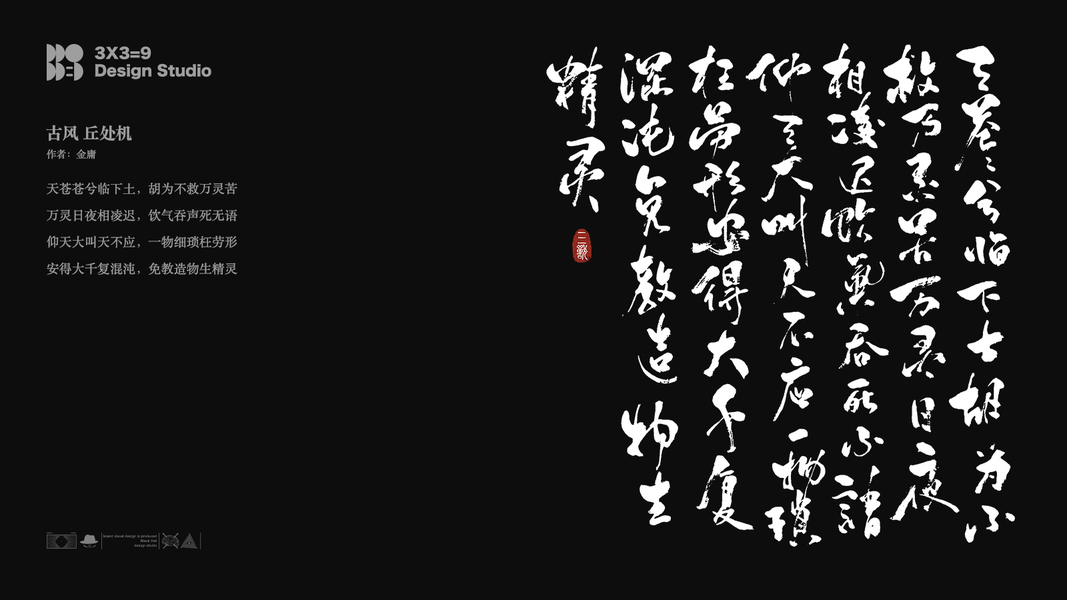 3X3=9
Design Studio
古风 丘处机
作者：金庸
天苍苍兮临下土，胡为不救万灵苦
万灵日夜相凌迟，饮气吞声死无语
仰天大叫天不应，一物细琐枉劳形
安得大千复混沌，免教造物生精灵
天苍〻兮临下士胡为不
救万灵苦万灵日夜
相凌迟飲氣吞死不語
仰天大叫天不应一物瑣
枉劳形安得大千复
混沌免教造物生
精灵
brand visual design is produced
Black Hat
design studio